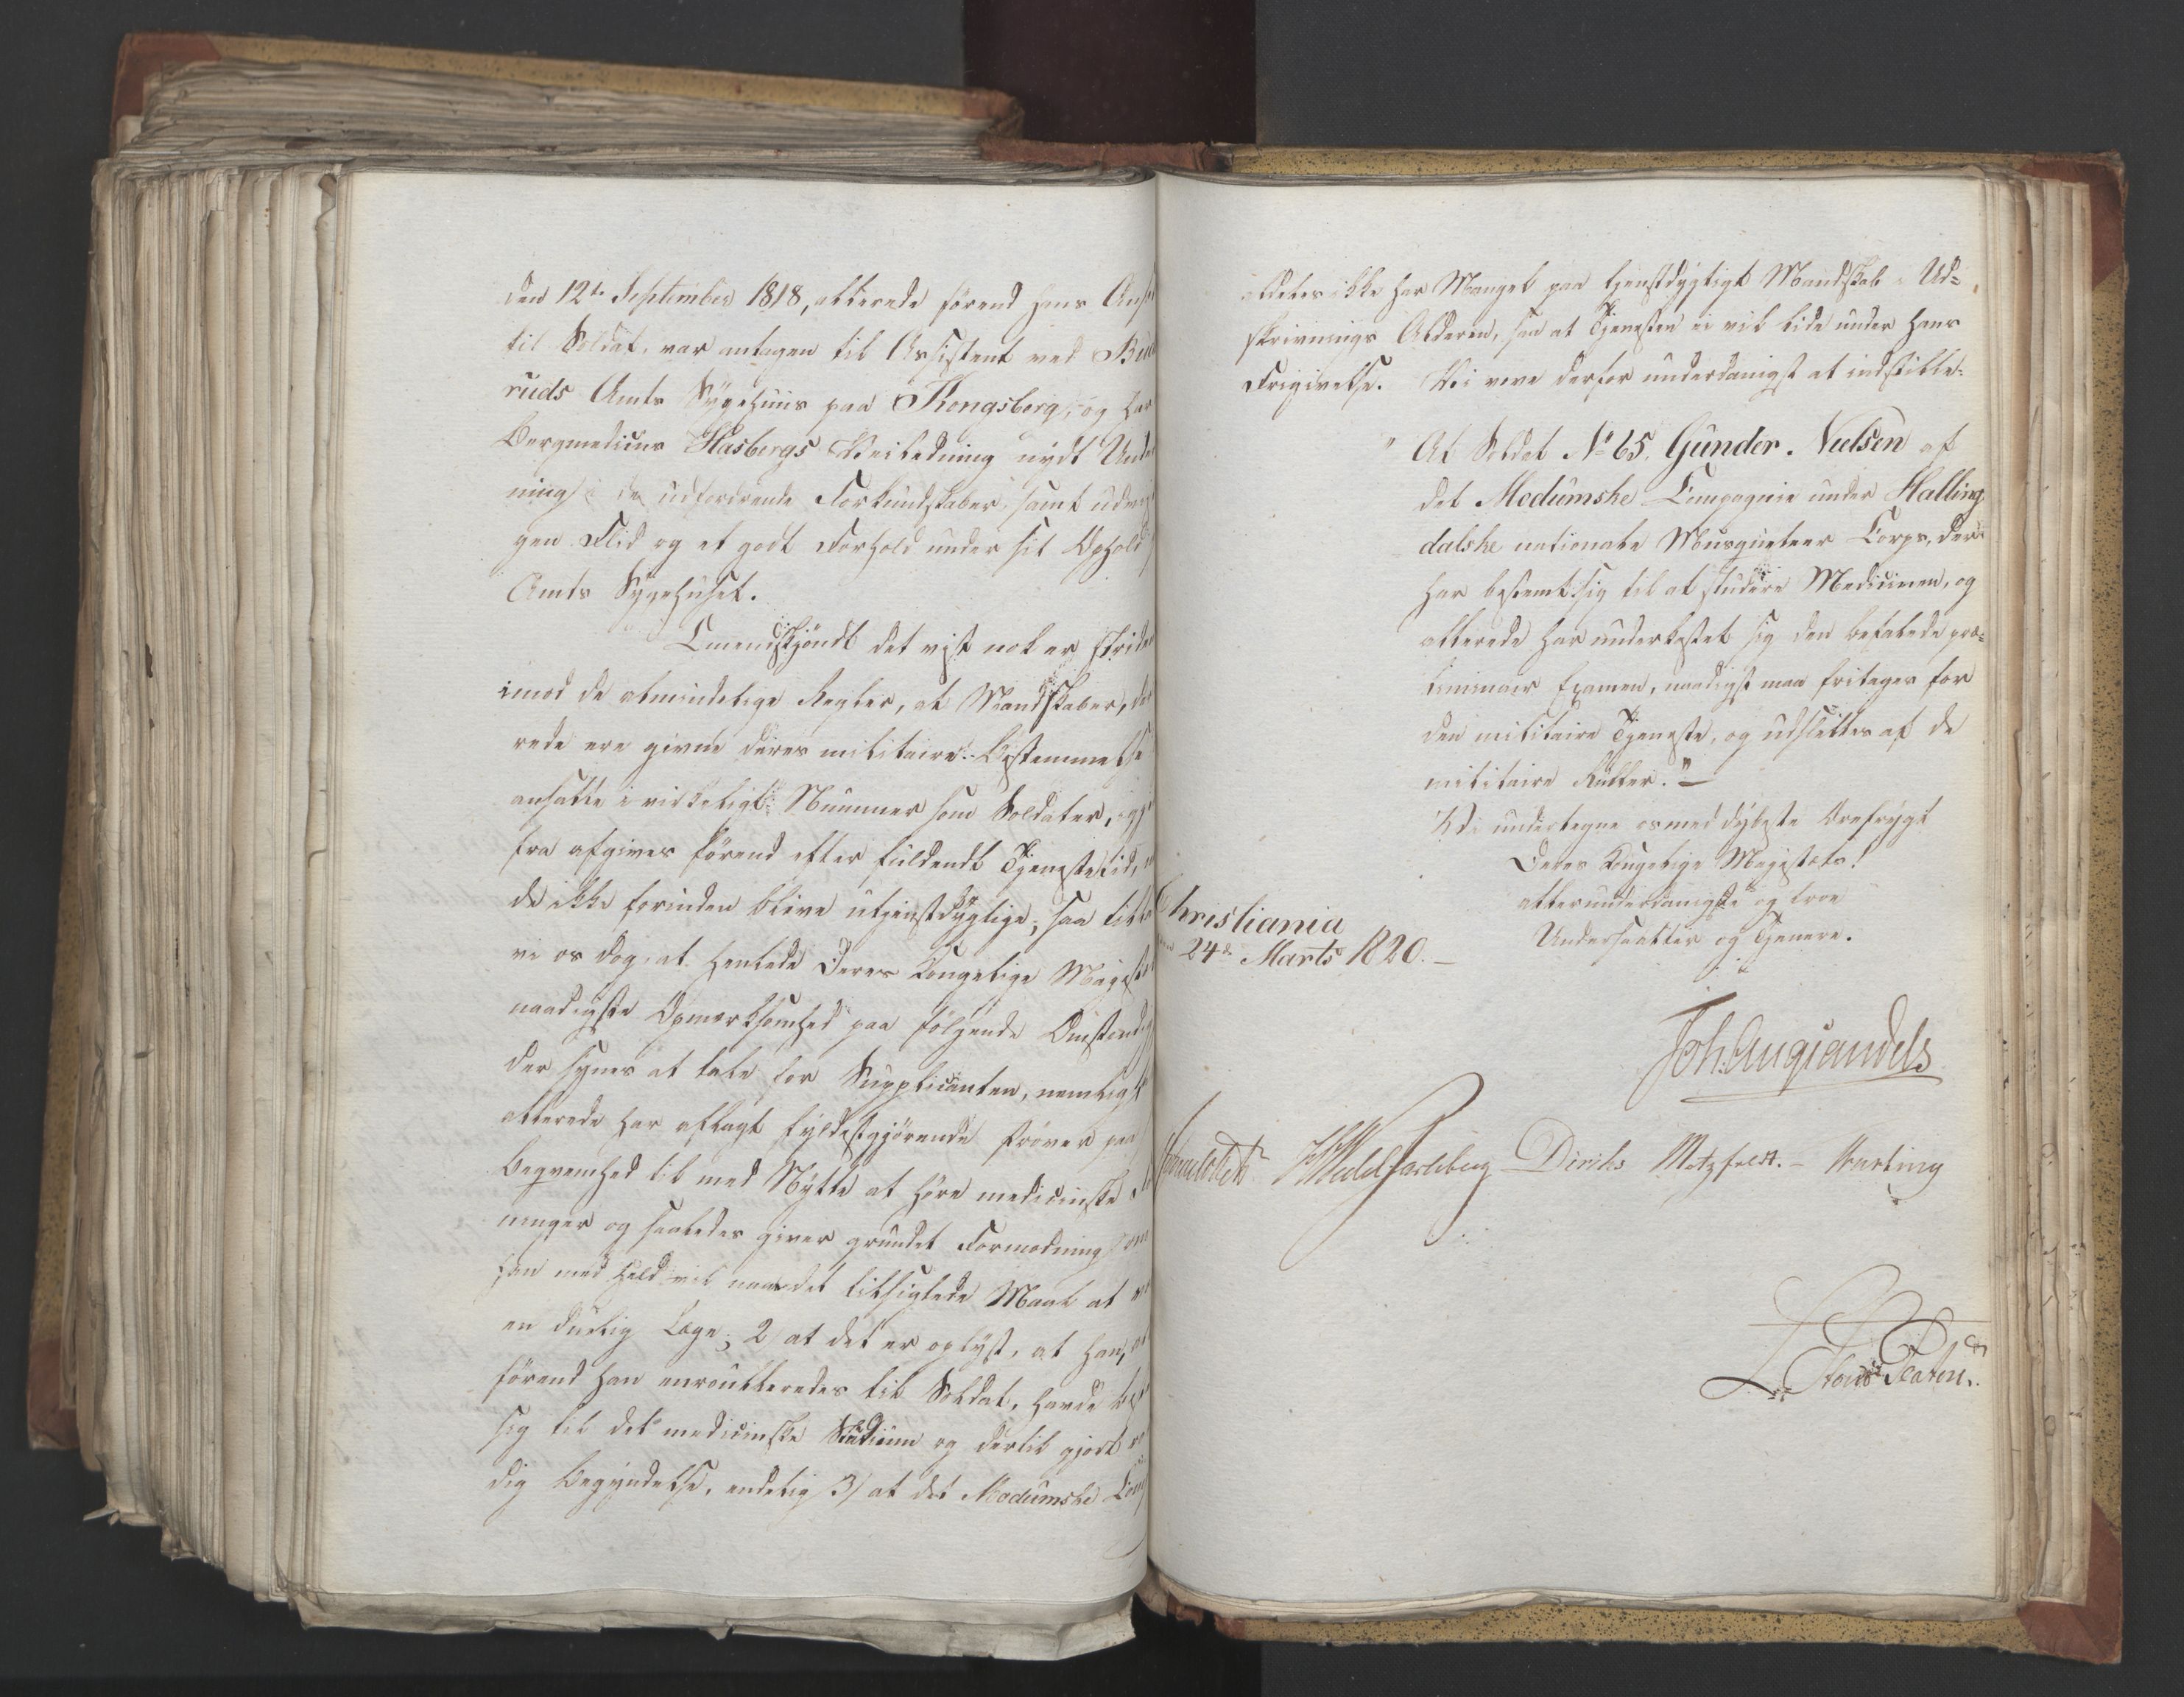 den 12te September 1818, allerede förend hans Ans
til Soldat, var antagen til Assistent ved Bu
ruds Amts Sygehuus paa Kongsberg, og har
Bergmedicus Hasbergs Veiledning nydt Unde
ning i de udfordrende Forkundskaber, samt udvi
gen Flid og et godt Forhold under sit Ophold
Amts Sygehuset.
Omendskjöndt det vist nok er stride
imod de almindelige Regler, at Mandskaber, de
rede ere givne deres militaire Bestemmelse
ansatte i virkeligt Nummer som Soldater, igj
fra afgives förend efter fuldendt Tjenestetid,
de ikke forinden blive utjenstdygtige, saa till
vi os dog, at henlede Deres Kongelige Majest
naadigste Opmærksomhed paa følgende Omstændig
der synes at tale for Supplicanten, nemlig
allerede har aflagt fyldestgjörende Pröver paa
Beqvemhed til med Nytte at höre medicinske
ninger og saaledes giver grundet Formodning om
han med Held vil naae det tilsigtede Maal at
en duelig Læge; 2/ at det er oplyst, at han,
förend han enroulleredes til Soldat, havde best
sig til det medicinske Studium og dertil gjort
dig Begyndelse, endelig 3/ at det Modumske Comp
aldeles ikke har Mangel paa tjenstdygtigt Mandskab i Ud-
skrivnings Alderen, saa at Tjenesten ei vil lide under hans
Frigivelse. Vi vove derfor underdanigst at indstille:
" At Soldat No 65, Gunder Nielsen af
det Modumske Compagnie under Halling
dalske nationale Musqueteer Corps, der
har bestemt sig til at studere Medicinen, og
allerede har underkastet sig den befalede præ-
liminair Examen, naadigst maa fritages for
den militaire Tjeneste, og udslettes af de
militaire Ruller." —
Vi undertegne os med dybeste Ærefrygt
Deres Kongelige Majestæts!
allerunderdanigste og troe
Undersaatter og Tjenere.
Christiania
den 24de Marts 1820. —
Joh. Aug Sandels
Sommerhielm HWedel Jarlsberg Diriks Motzfeldt. - Krefting
Hans Platou.